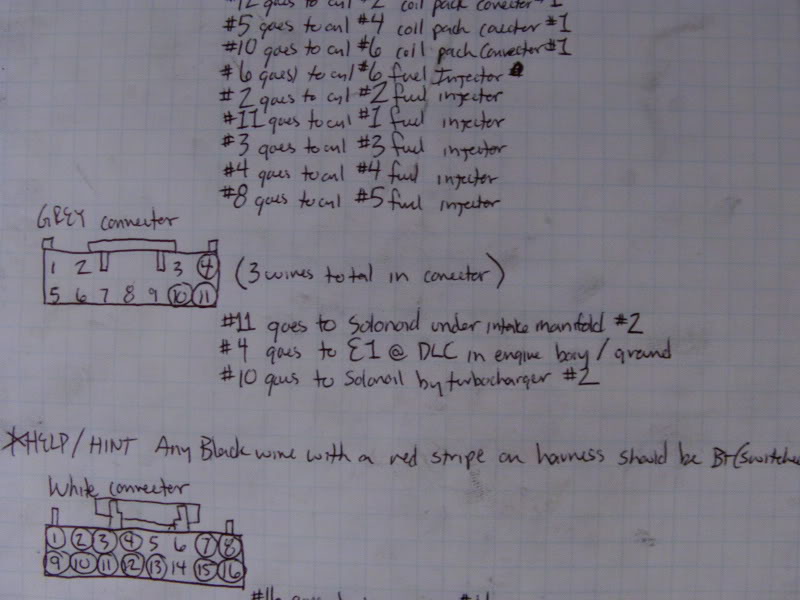 #12 goes to cyl #2 coil pack conector #1
#5 goes to cyl #4 coil pach conector #1
#10 goes to cyl #6 coil pach Connector #1
#6 goes to cyl #6 fuel Injector
#2 goes to cyl #2 fuel injector
#11 goes to cyl #1 fuel injector
#3 goes to cyl #3 fuel injector
#4 goes to cyl #4 fuel injector
#8 goes to cyl #5 fuel injector
GREY connector
1 2 3 4
5 6 7 8 9 10 11
(3 wires total in conector)
#11 goes to Solonoid under intake manifold #2
#4 goes to E1 @ DLC in engine bay / ground
#10 goes to Solonoil by turbocharger #2
*HELP/HINT Any Black wire with a red stripe on harness should be B+(switche
White connector
1 2 3 4 5 6 7 8
9 10 11 12 13 14 15 16
#16 goes to